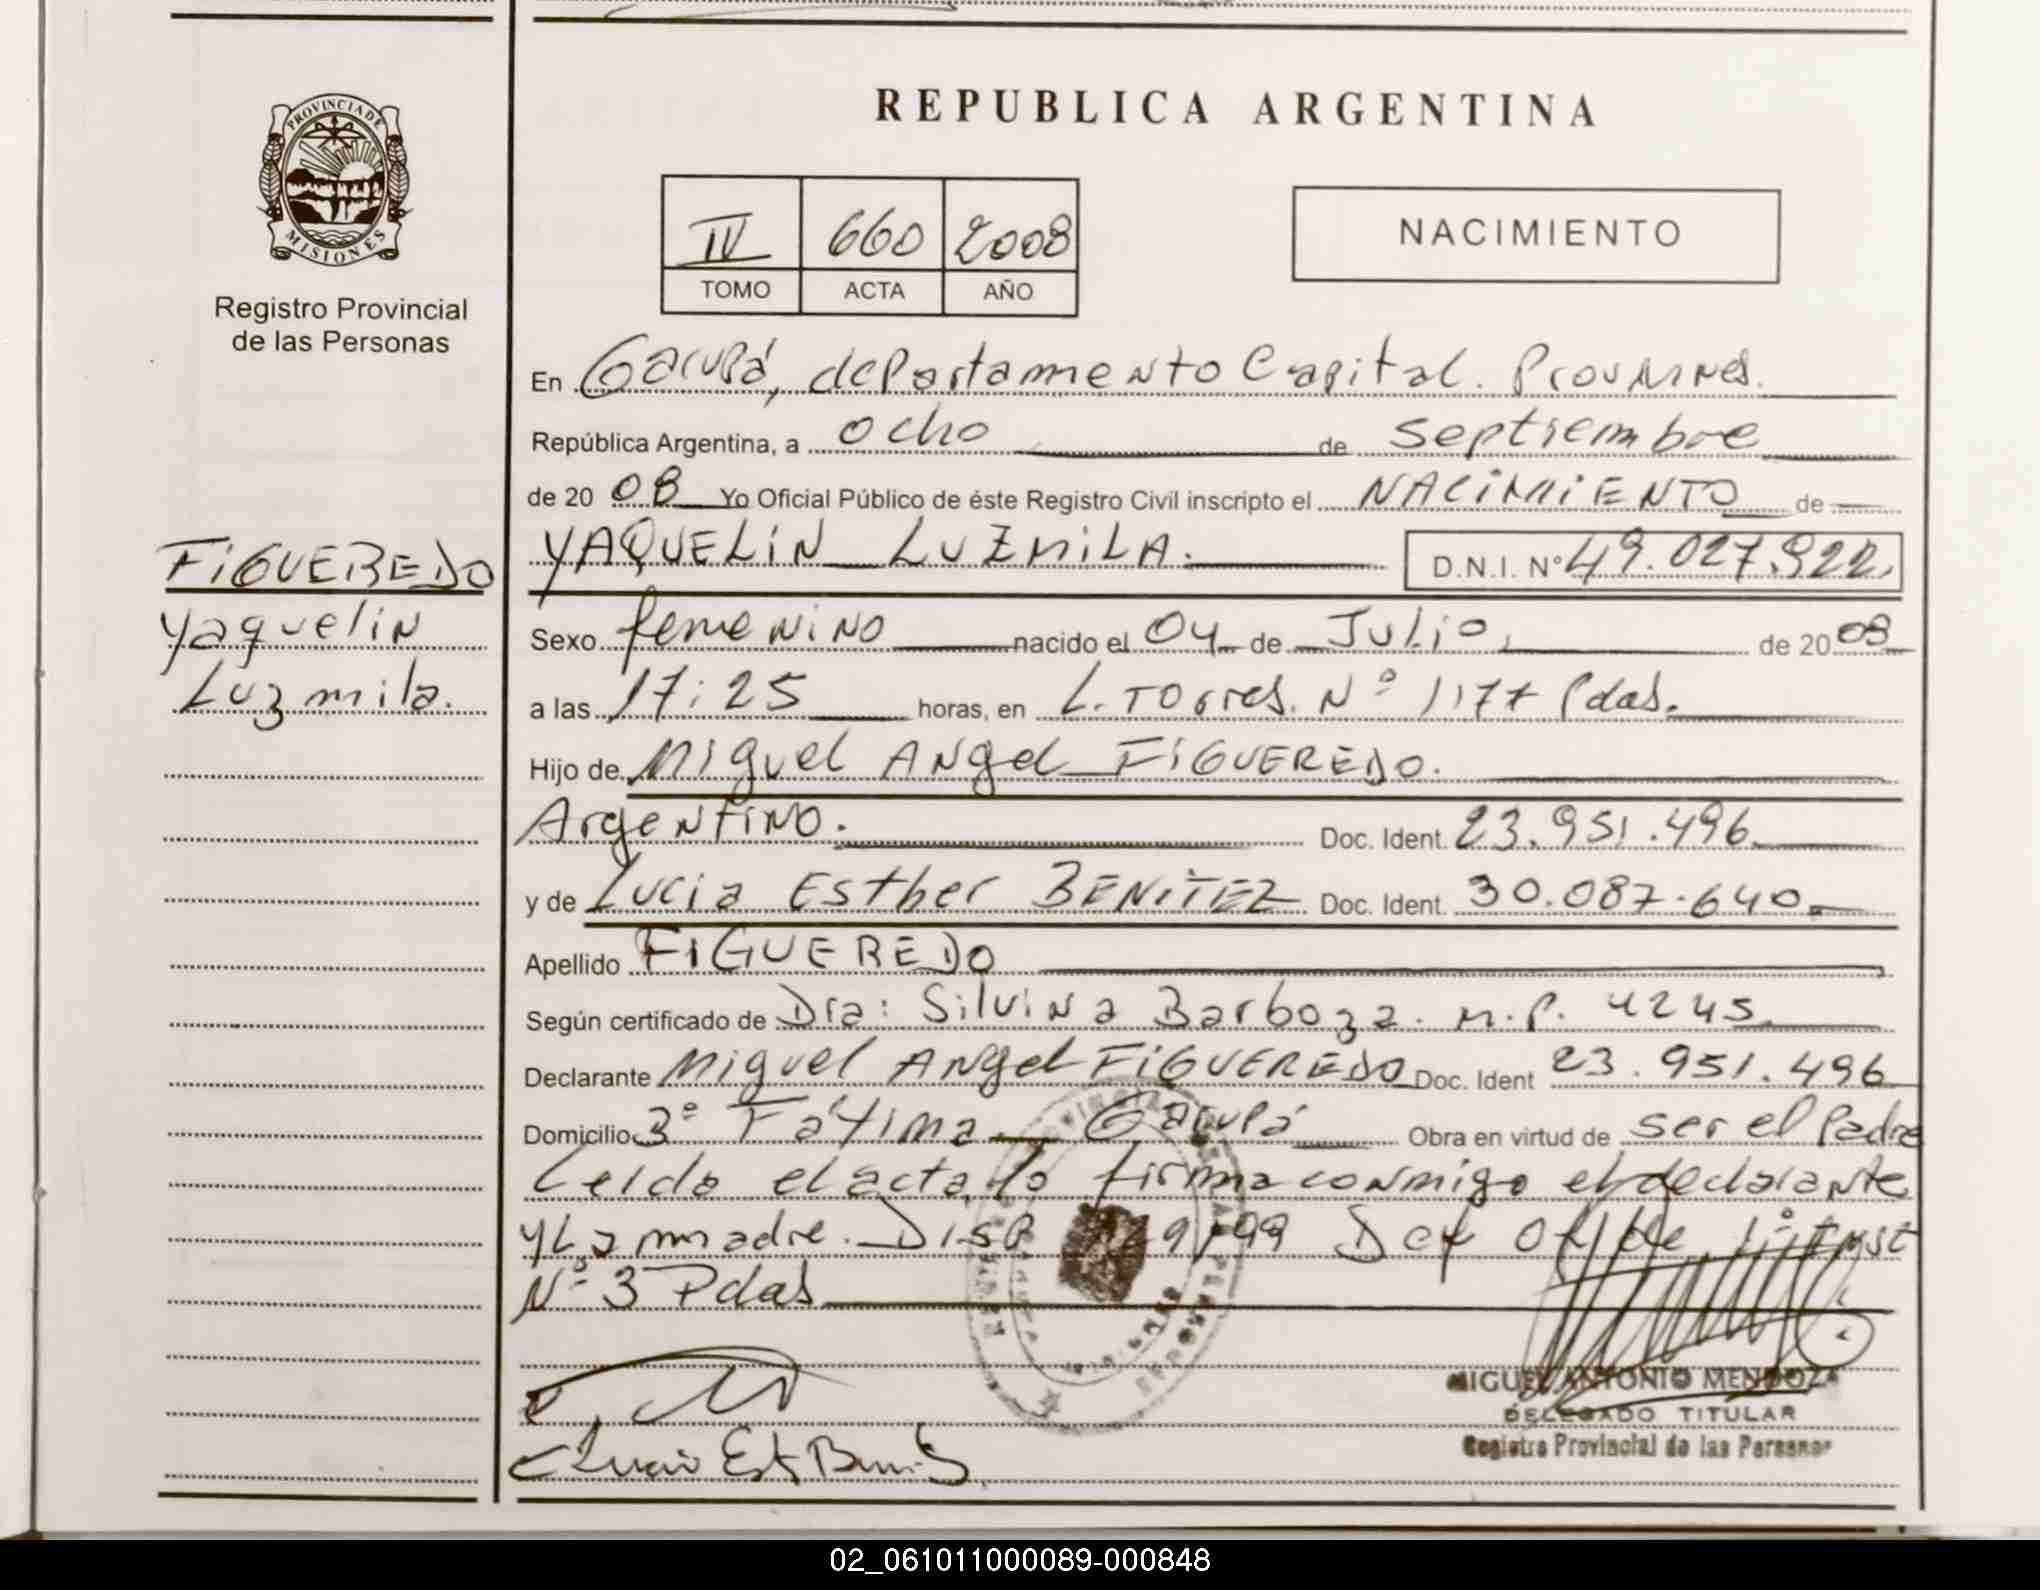 PROVINCIA DE
MISIONES
Registro Provincial
de las Personas
REPUBLICA ARGENTINA
IV 660 2008
TOMO ACTA AÑO
NACIMIENTO
En Garupá, departamento Capital. Prov Mnes.
República Argentina, a ocho de septiembre
de 20 08 Yo Oficial Público de éste Registro Civil inscripto el NACIMIENTO de
YAQUELIN LUZMILA. D.N.I. Nº 49.027.922.
FIGUEREDO
Yaquelin
Luzmila.
Sexo femenino nacido el 04 de Julio, de 2008
a las 17:25 horas, en L. Torres. Nº 1177 Pdas.
Hijo de Miguel Angel FIGUEREDO.
Argentino. Doc. Ident. 23.951.496
y de Lucia Esther BENITEZ Doc. Ident. 30.087.640.
Apellido FIGUEREDO
Según certificado de Dra: Silvina Barboza. M.P. 4245
Declarante Miguel Angel FIGUEREDO Doc. Ident 23.951.496
Domicilio 3º Fátima Garupá Obra en virtud de ser el Padre
Leido el acta lo firma conmigo el declarante
y La madre. Disp 99 Of de
Nº 3 Pdas
MIGUEL ANTONIO MENDOZA
DELEGADO TITULAR
Registro Provincial de las Personas
02_061011000089-000848